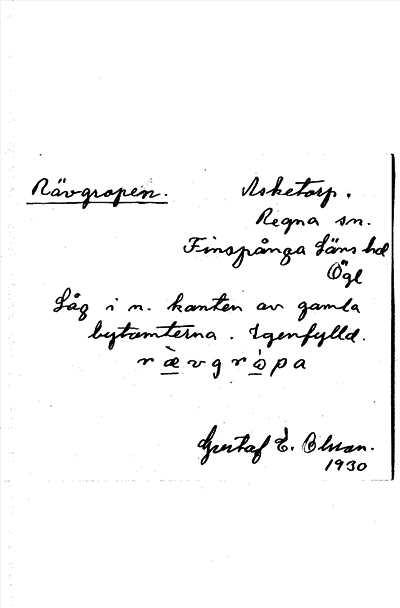 Rävgropen. Asketorp.
Regna sn.
Finspånga Läns hd
Ögl
Låg i n. kanten av gamla
bytomterna. Igenfylld.
r æ̀ v g r ò p a
Gustaf E. Olsson.
1930